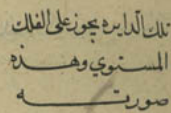 تلك الدايره يجوز على الفلك
المستوي وهذه
صورته